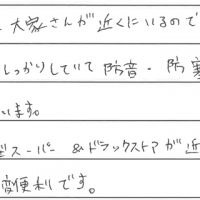 大家さんが近くにいるので
しっかりしていて防音・防寒
います。
スーパー&ドラックストアが近
変便利です。